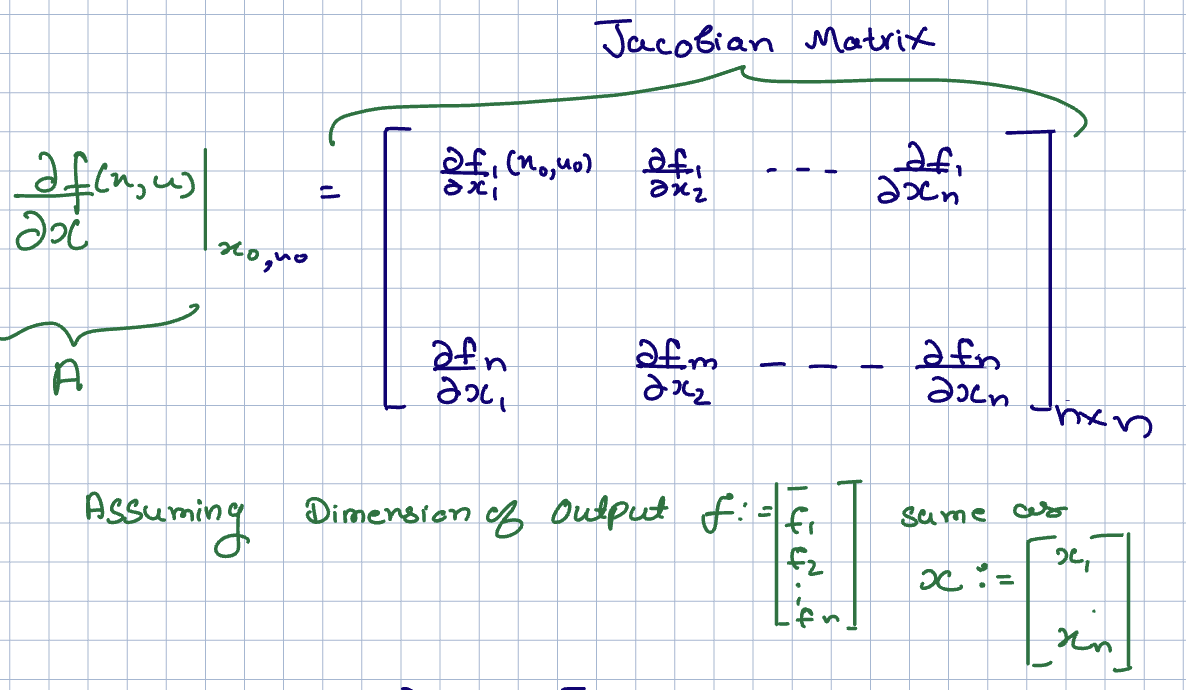 Jacobian Matrix
∂f(x,u)/∂x |x₀,u₀ = [ ∂f₁/∂x₁ (x₀,u₀) ∂f₁/∂x₂ - - - ∂f₁/∂xₙ
∂fₙ/∂x₁ ∂fₘ/∂x₂ - - - - ∂fₙ/∂xₙ ] n×n
A
Assuming Dimension of Output f := [ f₁ f₂ : fₙ ] same as
x := [ x₁ . xₙ ]